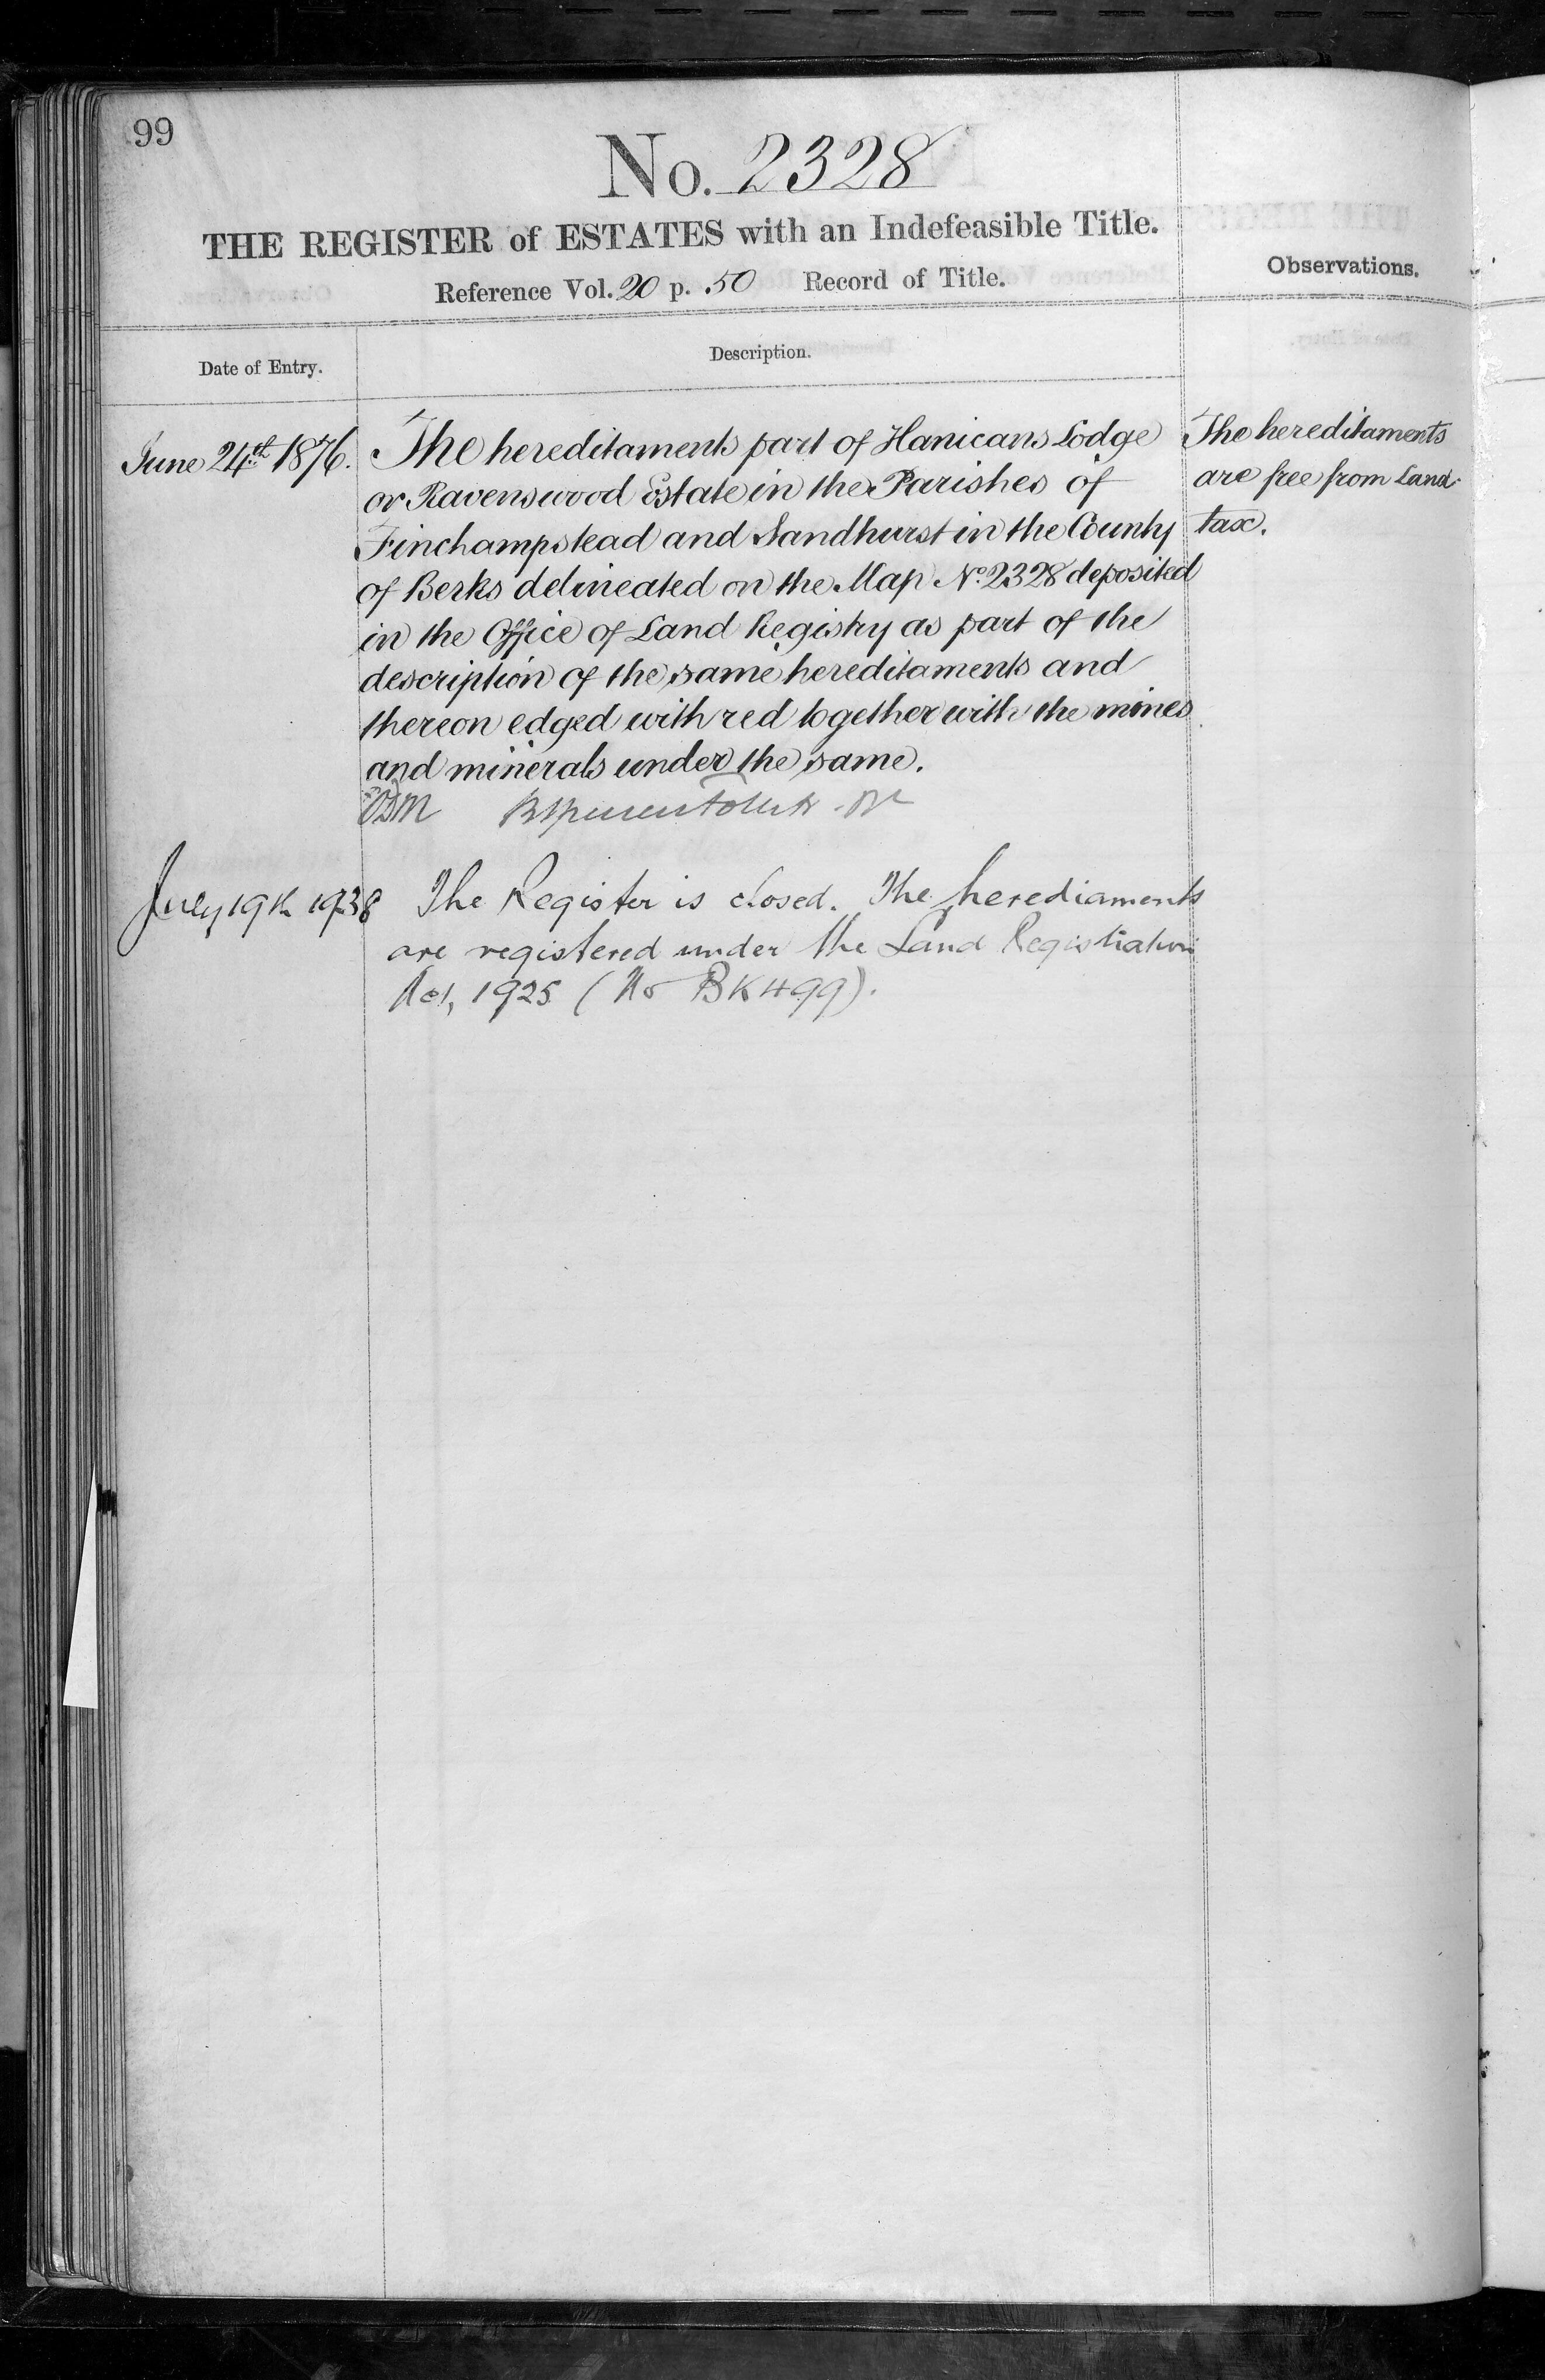 99
No. 2328
THE REGISTER of ESTATES with an Indefeasible Title.
Reference Vol. 20 p. 50 Record of Title.
Observations.
Date of Entry.
Description.
June 24th 1876.
The hereditaments part of Hanicans Lodge
or Ravenswood Estate in the Parishes of
Finchampstead and Sandhurst in the County
of Berks delineated on the Map No. 2328 deposited
in the Office of Land Registry as part of the
description of the same hereditaments and
thereon edged with red together with the mines
and minerals under the same.
The hereditaments
are free from Land
tax.
July 19th 1938
The Register is closed. The herediaments
are registered under the Land Registration
Act, 1925 (No BK499).